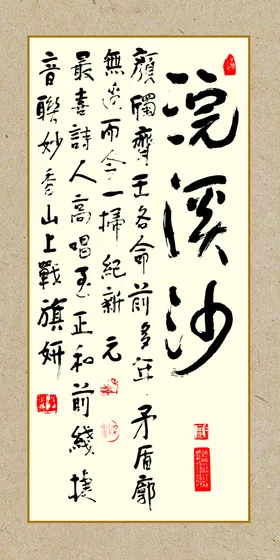 浣溪沙
顏斶齊王各命前多年矛盾廓
無邊而今一掃紀新元
最喜詩人高唱至正和前綫捷
音聯妙香山上戰旗妍